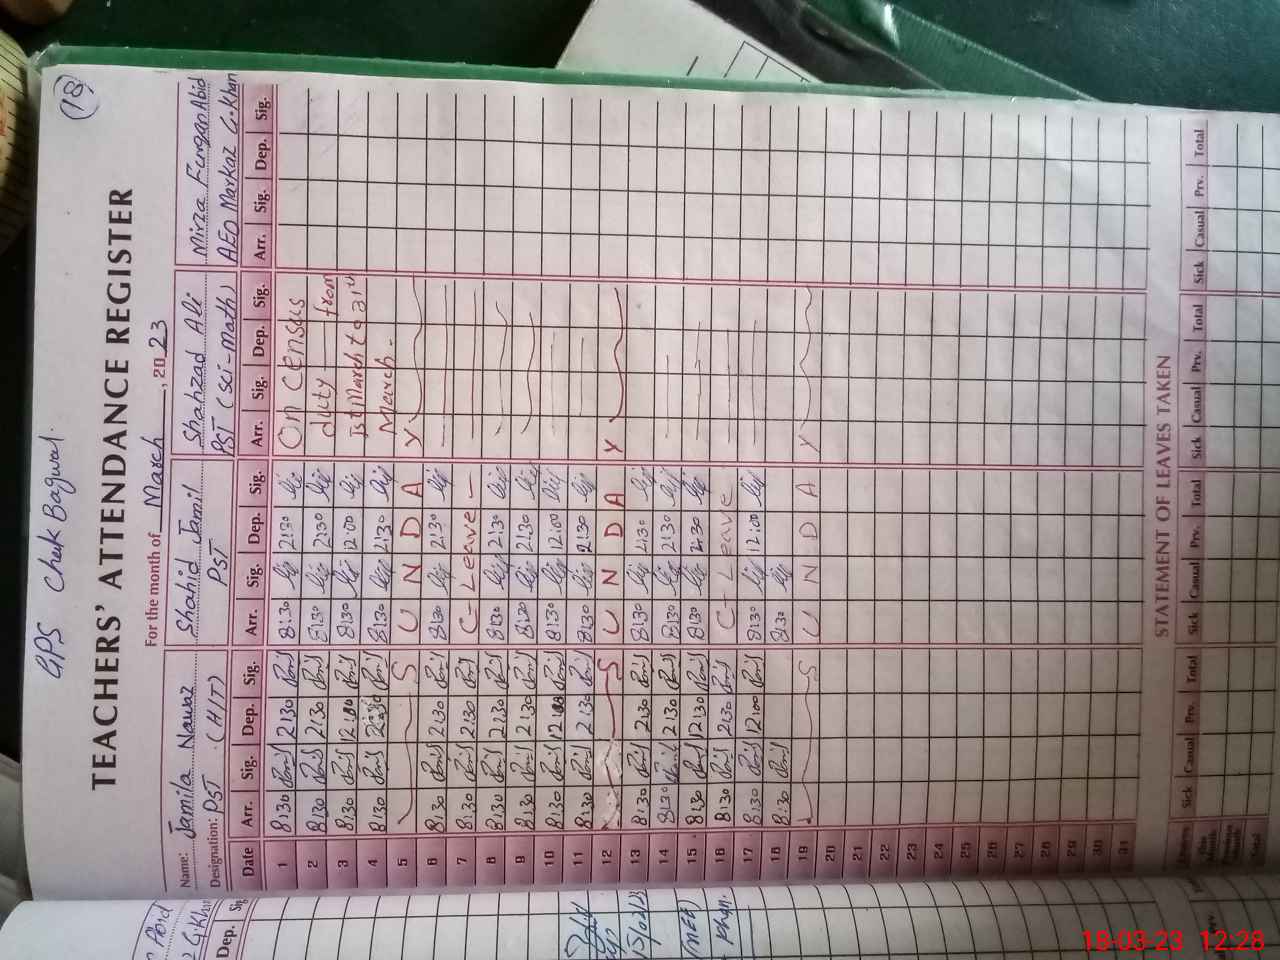 (18)
GPS Chak Bagwal.
TEACHERS' ATTENDANCE REGISTER
For the month of March, 2023
Name: Jamila Nawaz Shahid Jamil Shahzad Ali Mirza Furqan Abid
Designation: PST (H/T) PST PST (sci-math) AEO Markaz G.Khan
Date Arr. Sig. Dep. Sig. Arr. Sig. Dep. Sig. Arr. Sig. Dep. Sig. Arr. Sig. Dep. Sig.
1 8:30 2:30 8:30 2:30 On Census
2 8:30 2:30 8:30 2:30 duty from
3 8:30 12:00 8:30 12:00 1st March to 31st
4 8:30 2:30 8:30 2:30 March.
5 S U N D A Y
6 8:30 2:30 8:30 2:30
7 8:30 2:30 C-Leave-
8 8:30 2:30 8:30 2:30
9 8:30 2:30 8:30 2:30
10 8:30 12:00 8:30 12:00
11 8:30 2:30 8:30 2:30
12 S U N D A Y
13 8:30 2:30 8:30 2:30
14 8:30 2:30 8:30 2:30
15 8:30 12:30 8:30 2:30
16 8:30 2:30 C-Leave
17 8:30 12:00 8:30 12:00
18 8:30 8:30
19 S U N D A Y
20
21
22
23
24
25
26
27
28
29
30
31
STATEMENT OF LEAVES TAKEN
Leaves Sick Casual Prv. Total Sick Casual Prv. Total Sick Casual Prv. Total Sick Casual Prv. Total
Total
Abid
G.Khan
Dep. Sig.
15/02/23
Khan.
18-03-23 12:28